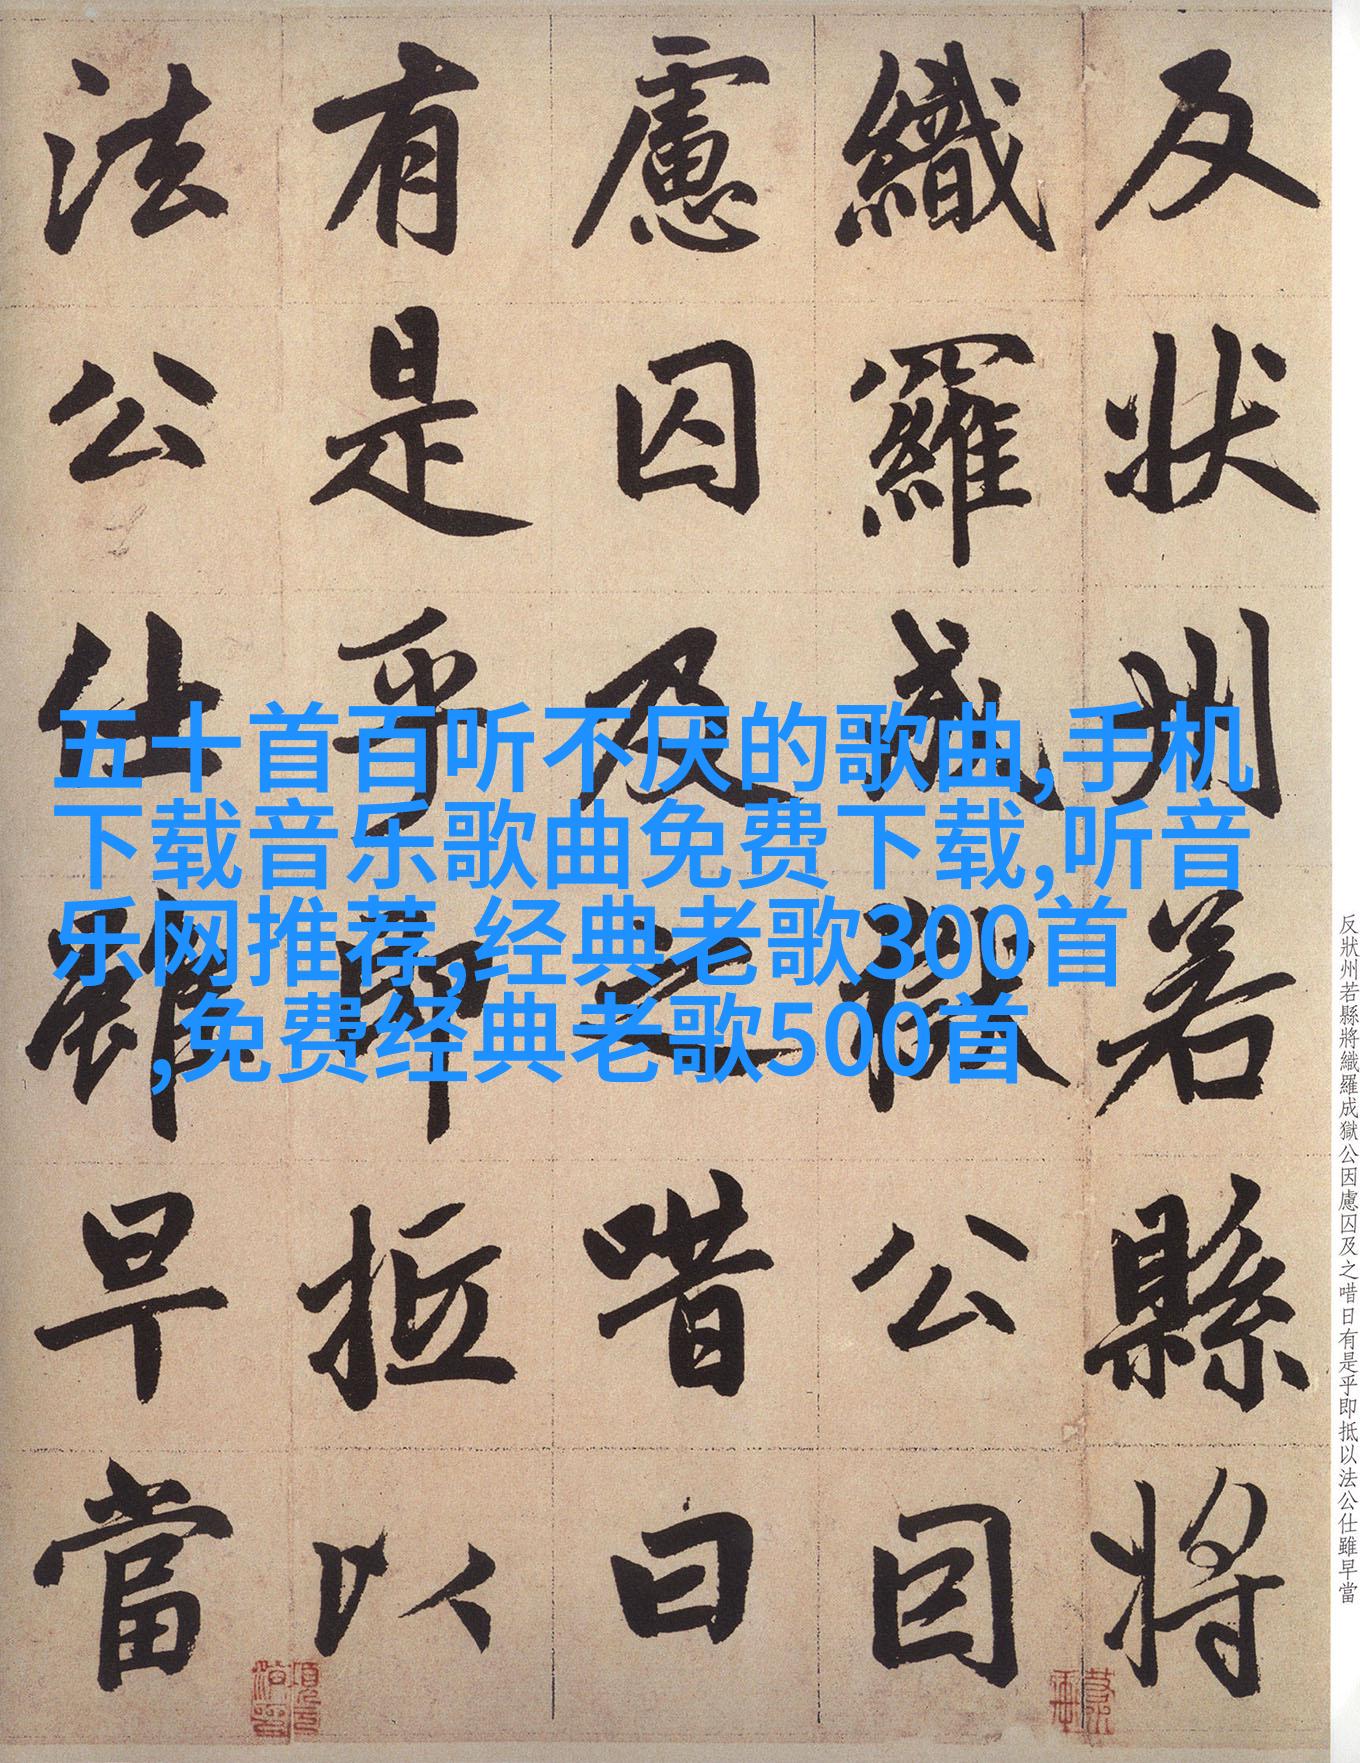 反狀州若縣將
織羅成獄公因
慮囚及之唶曰
有是乎即抵以
法公仕雖早當
五十首百听不厌的歌曲,手机
下载音乐歌曲免费下载,听音
乐网推荐,经典老歌300首
,免费经典老歌500首
反狀州若縣將織羅成獄公因慮囚及之唶日有是乎即抵以法公仕雖早當